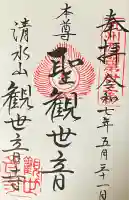 奉拝
令和七年五月二十一日
本尊
聖観世音
清水山
観世音寺